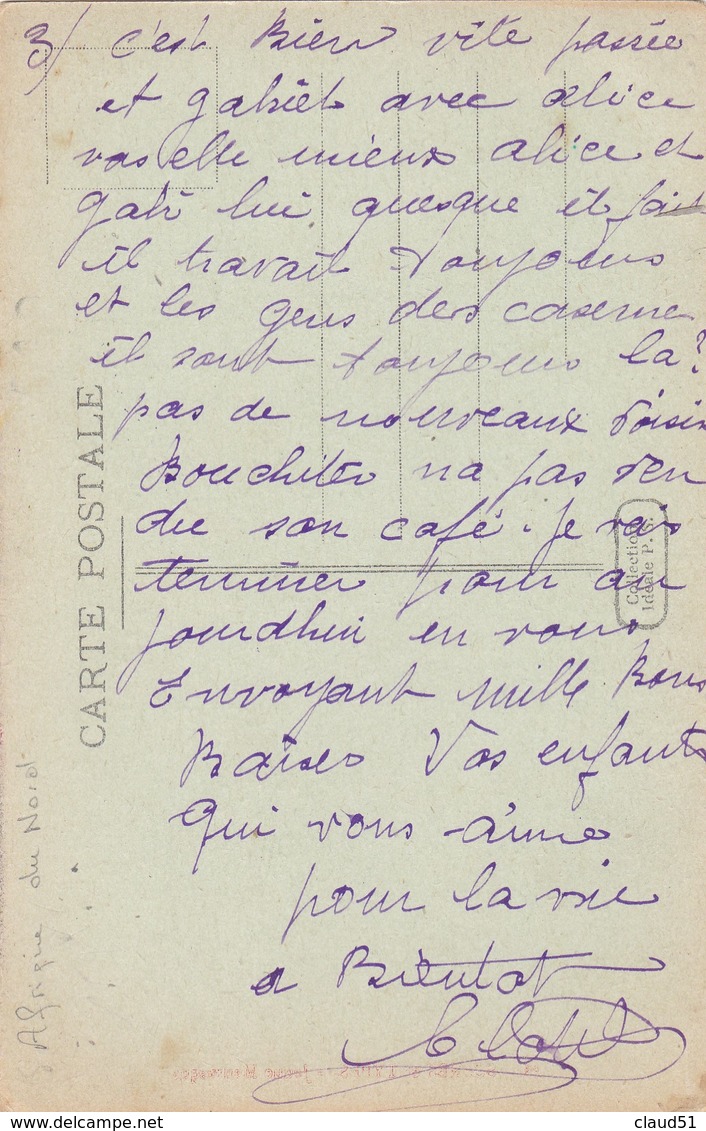 3/ c'est Bien vite passée
et gabriel avec alice
vas elle mieux alice et
gabi lui quesque il fait
il travail toujours
et les gens des caserne
il sont toujours la?
pas de nouveaux voisin
Bouchités na pas ven
du son café. je vais
terminer pour au
jourdhui en vous
Envoyant mille Bons
Baises Vos enfants
qui vous aime
pour la vie
a Bientot
CARTE POSTALE
Collection
Idéale P. S.
Afrique du Nord
claud51